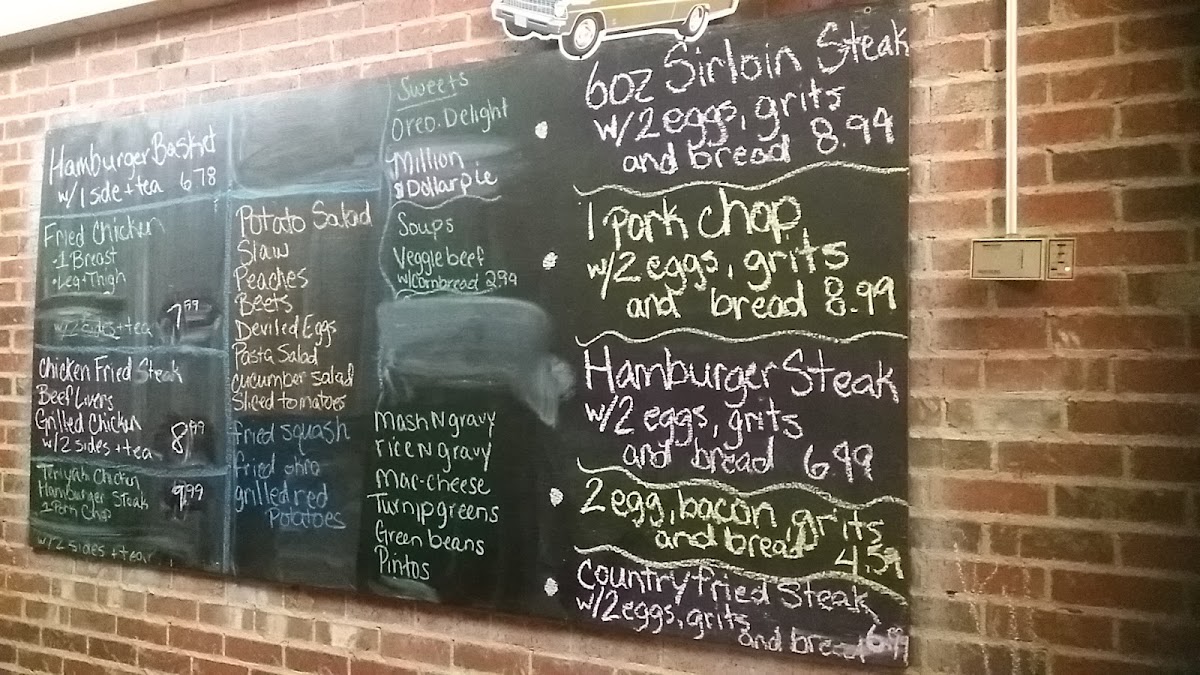 Hamburger Basket
w/ 1 side + tea 6 78
Fried Chicken
• 1 Breast
• Leg + Thigh
w/ 2 sides + tea 7 99
Chicken Fried Steak
Beef Livers
Grilled Chicken
w/ 2 sides + tea 8 99
Teriyaki Chicken
Hamburger Steak
1 Pork Chop
9.99
w/ 2 sides + tea
Potato Salad
Slaw
Peaches
Beets
Deviled Eggs
Pasta Salad
cucumber salad
Sliced tomatoes
fried squash
fried okra
grilled red
Potatoes
Sweets
Oreo Delight
Million
$ Dollar pie
Soups
Veggie beef
w/ Cornbread 2.99
Mash N gravy
rice N gravy
Mac-cheese
Turnip greens
Green beans
Pintos
6oz Sirloin Steak
w/ 2 eggs, grits
and bread 8.99
1 pork chop
w/ 2 eggs, grits
and bread 8.99
Hamburger Steak
w/ 2 eggs, grits
and bread 6.99
2 egg, bacon grits
and bread 4.59
Country fried Steak
w/ 2 eggs, grits
and bread 6.99